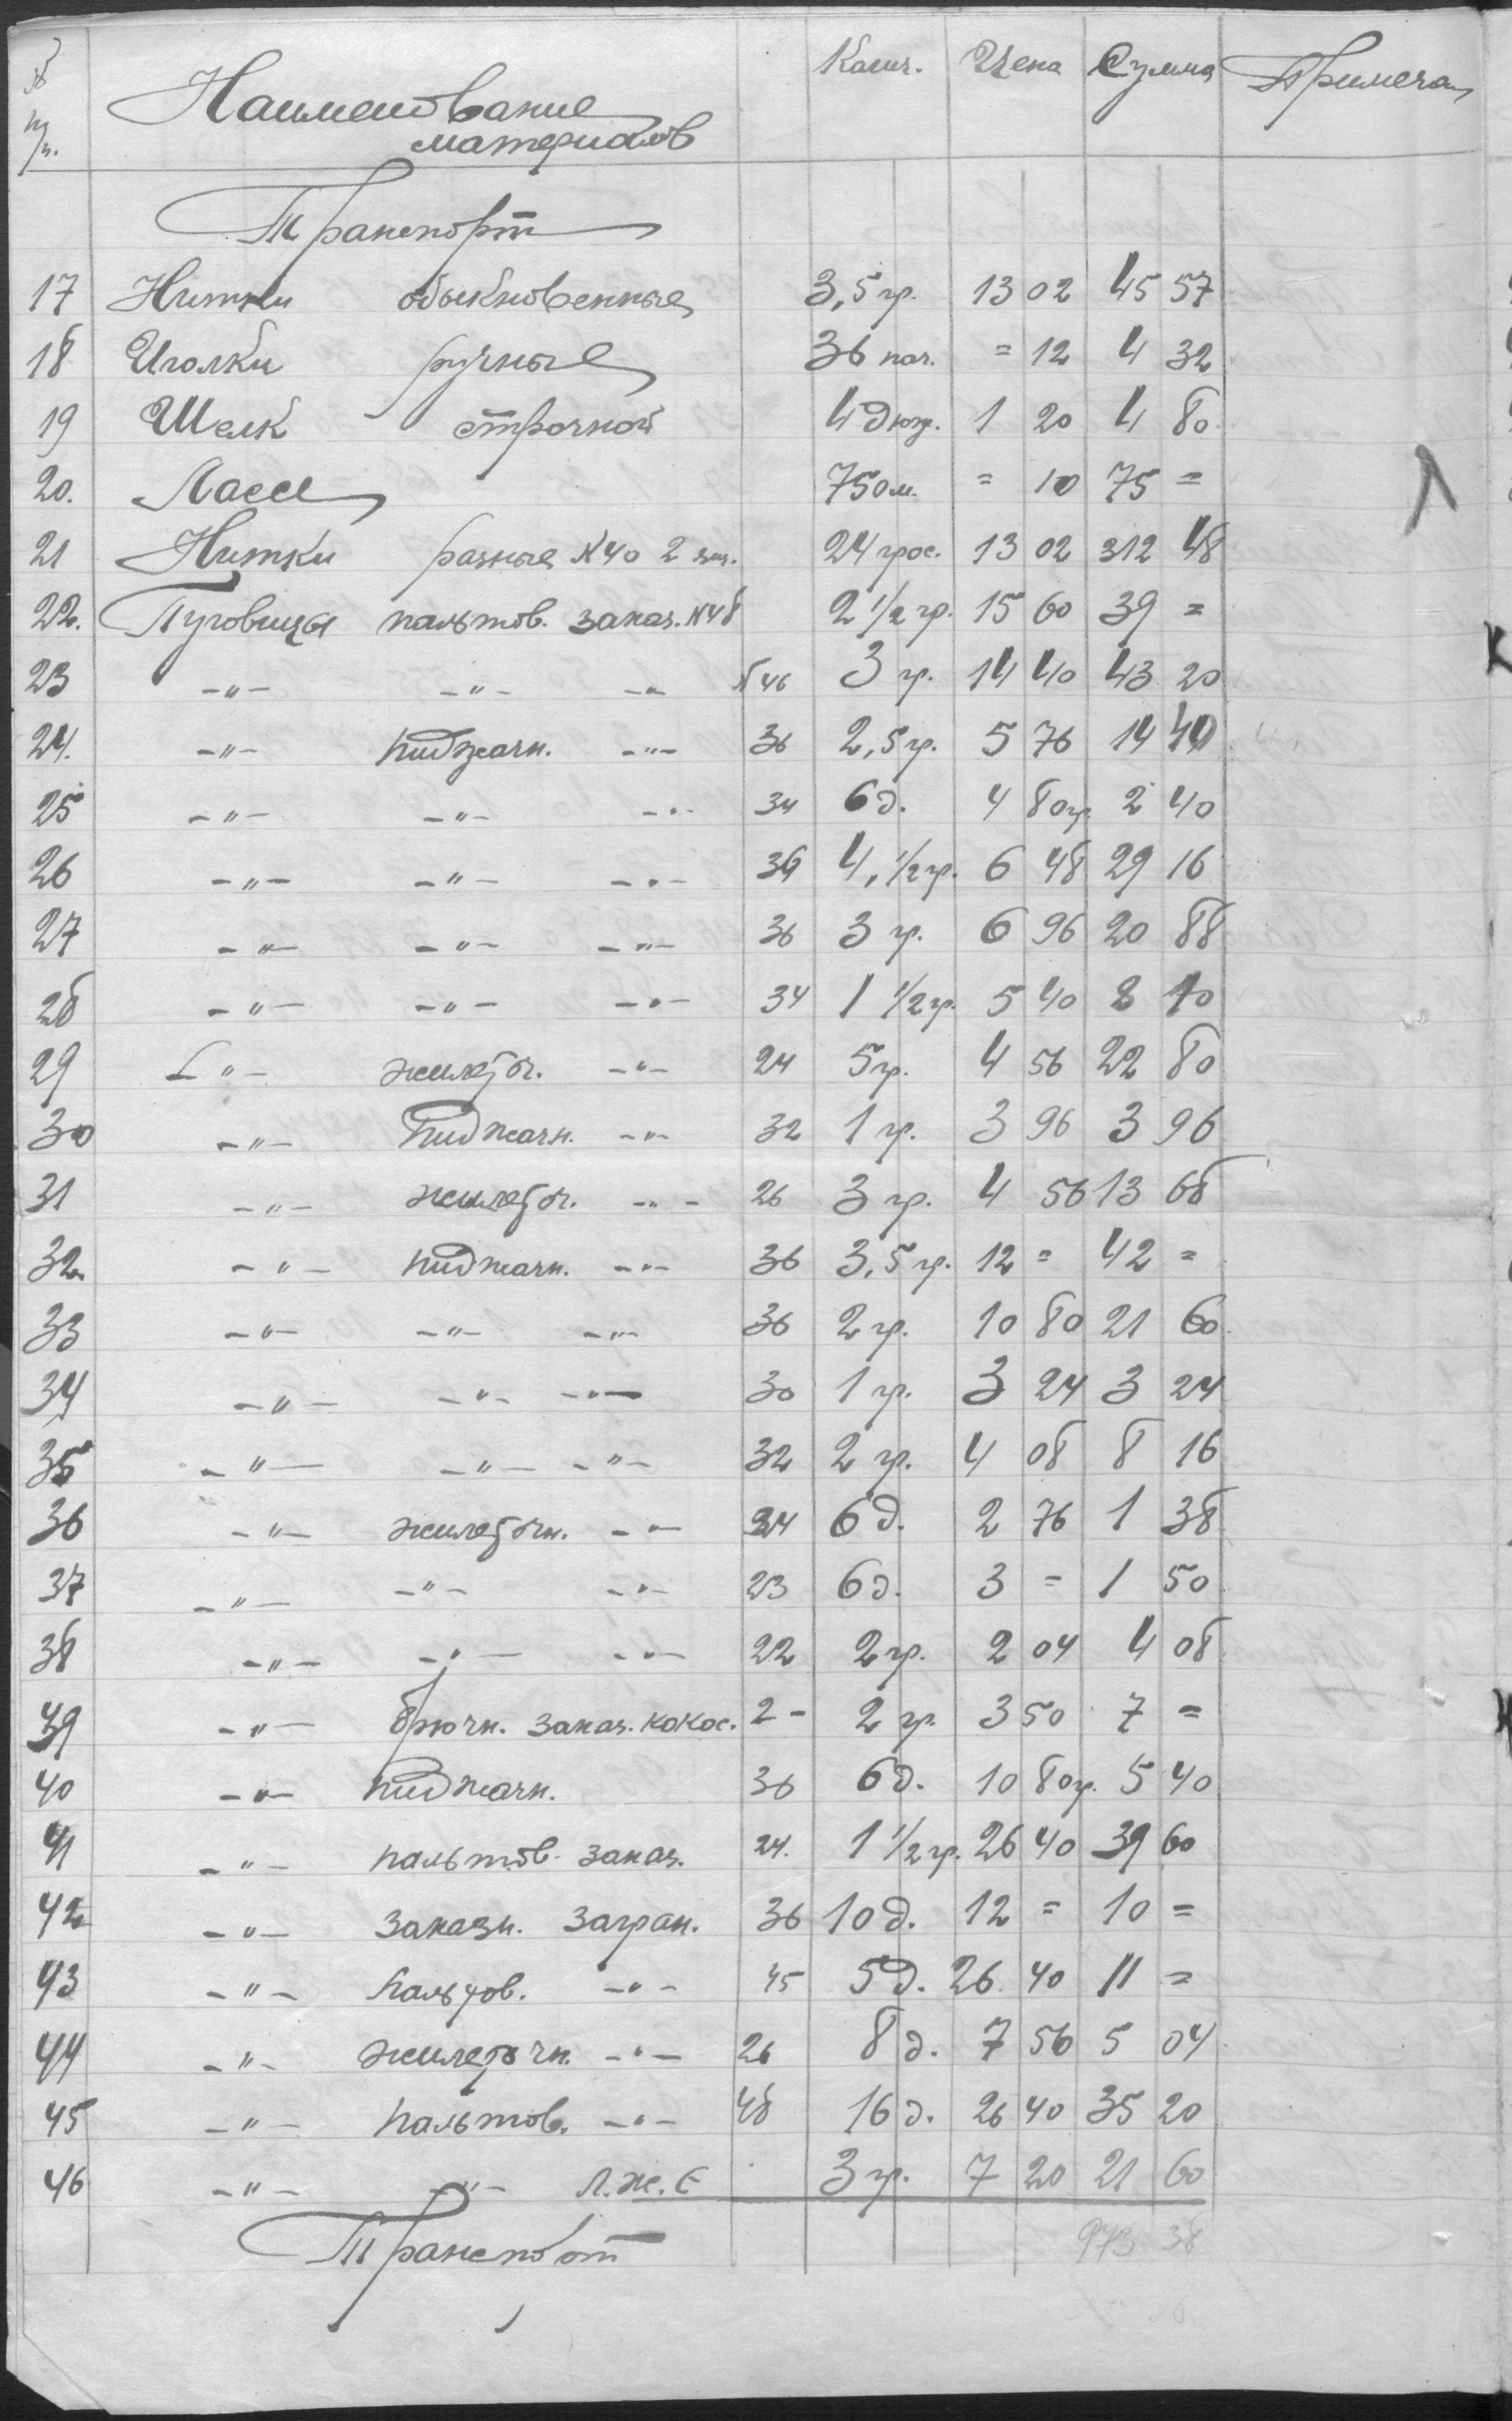 № п/п. Наименование материалов Колич. Цена Сумма Примеча
Транспорт
17 Нитки обыкновенные 3,5 гр. 13 02 45 57
18 Иголки ручные 36 пач. = 12 4 32
19 Шелк строчной 4 дюж. 1 20 4 80
20. Лассе 750 м. = 10 75 =
21 Нитки разные №40 2  24 грос. 13 02 312 48
22. Пуговицы пальтов. заказ. №48 2 1/2 гр. 15 60 39 =
23 -"- -"- -"- №46 3 гр. 14 40 43 20
24. -"- пиджачн. -"- 36 2,5 гр. 5 76 14 40
25 -"- -"- -"- 34 6 д. 4 80 гр. 2 40
26 -"- -"- -"- 36 4, 1/2 гр. 6 48 29 16
27 -"- -"- -"- 36 3 гр. 6 96 20 88
28 -"- -"- -"- 34 1 1/2 гр. 5 40 8 10
29 -"- жилеточ. -"- 24 5 гр. 4 56 22 80
30 -"- пиджачн. -"- 32 1 гр. 3 96 3 96
31 -"- жилеточ. -"- 26 3 гр. 4 56 13 68
32. -"- пиджачн. -"- 36 3,5 гр. 12 = 42 =
33 -"- -"- -"- 36 2 гр. 10 80 21 60
34 -"- -"- -"- 30 1 гр. 3 24 3 24
35 -"- -"- -"- 32 2 гр. 4 08 8 16
36 -"- жилеточн. -"- 24 6 д. 2 76 1 38
37 -"- -"- -"- 23 6 д. 3 = 1 50
38 -"- -"- -"- 22 2 гр. 2 04 4 08
39 -"- брючн. заказ. кокос. 2- 2 гр. 3 50 7 =
40 -"- пиджачн. 36 6 д. 10 80 гр. 5 40
41 -"- пальтов. заказ. 24. 1 1/2 гр. 26 40 39 60
42 -"- заказн. загран. 36 10 д. 12 = 10 =
43 -"- пальтов. -"- 45 5 д. 26 40 11 =
44 -"- жилеточн. -"- 26 8 д. 7 56 5 04
45 -"- пальтов. -"- 48 16 д. 26 40 35 20
46 -"- -"- Л.Ж.Е 3 гр. 7 20 21 60
Транспорт 973 38